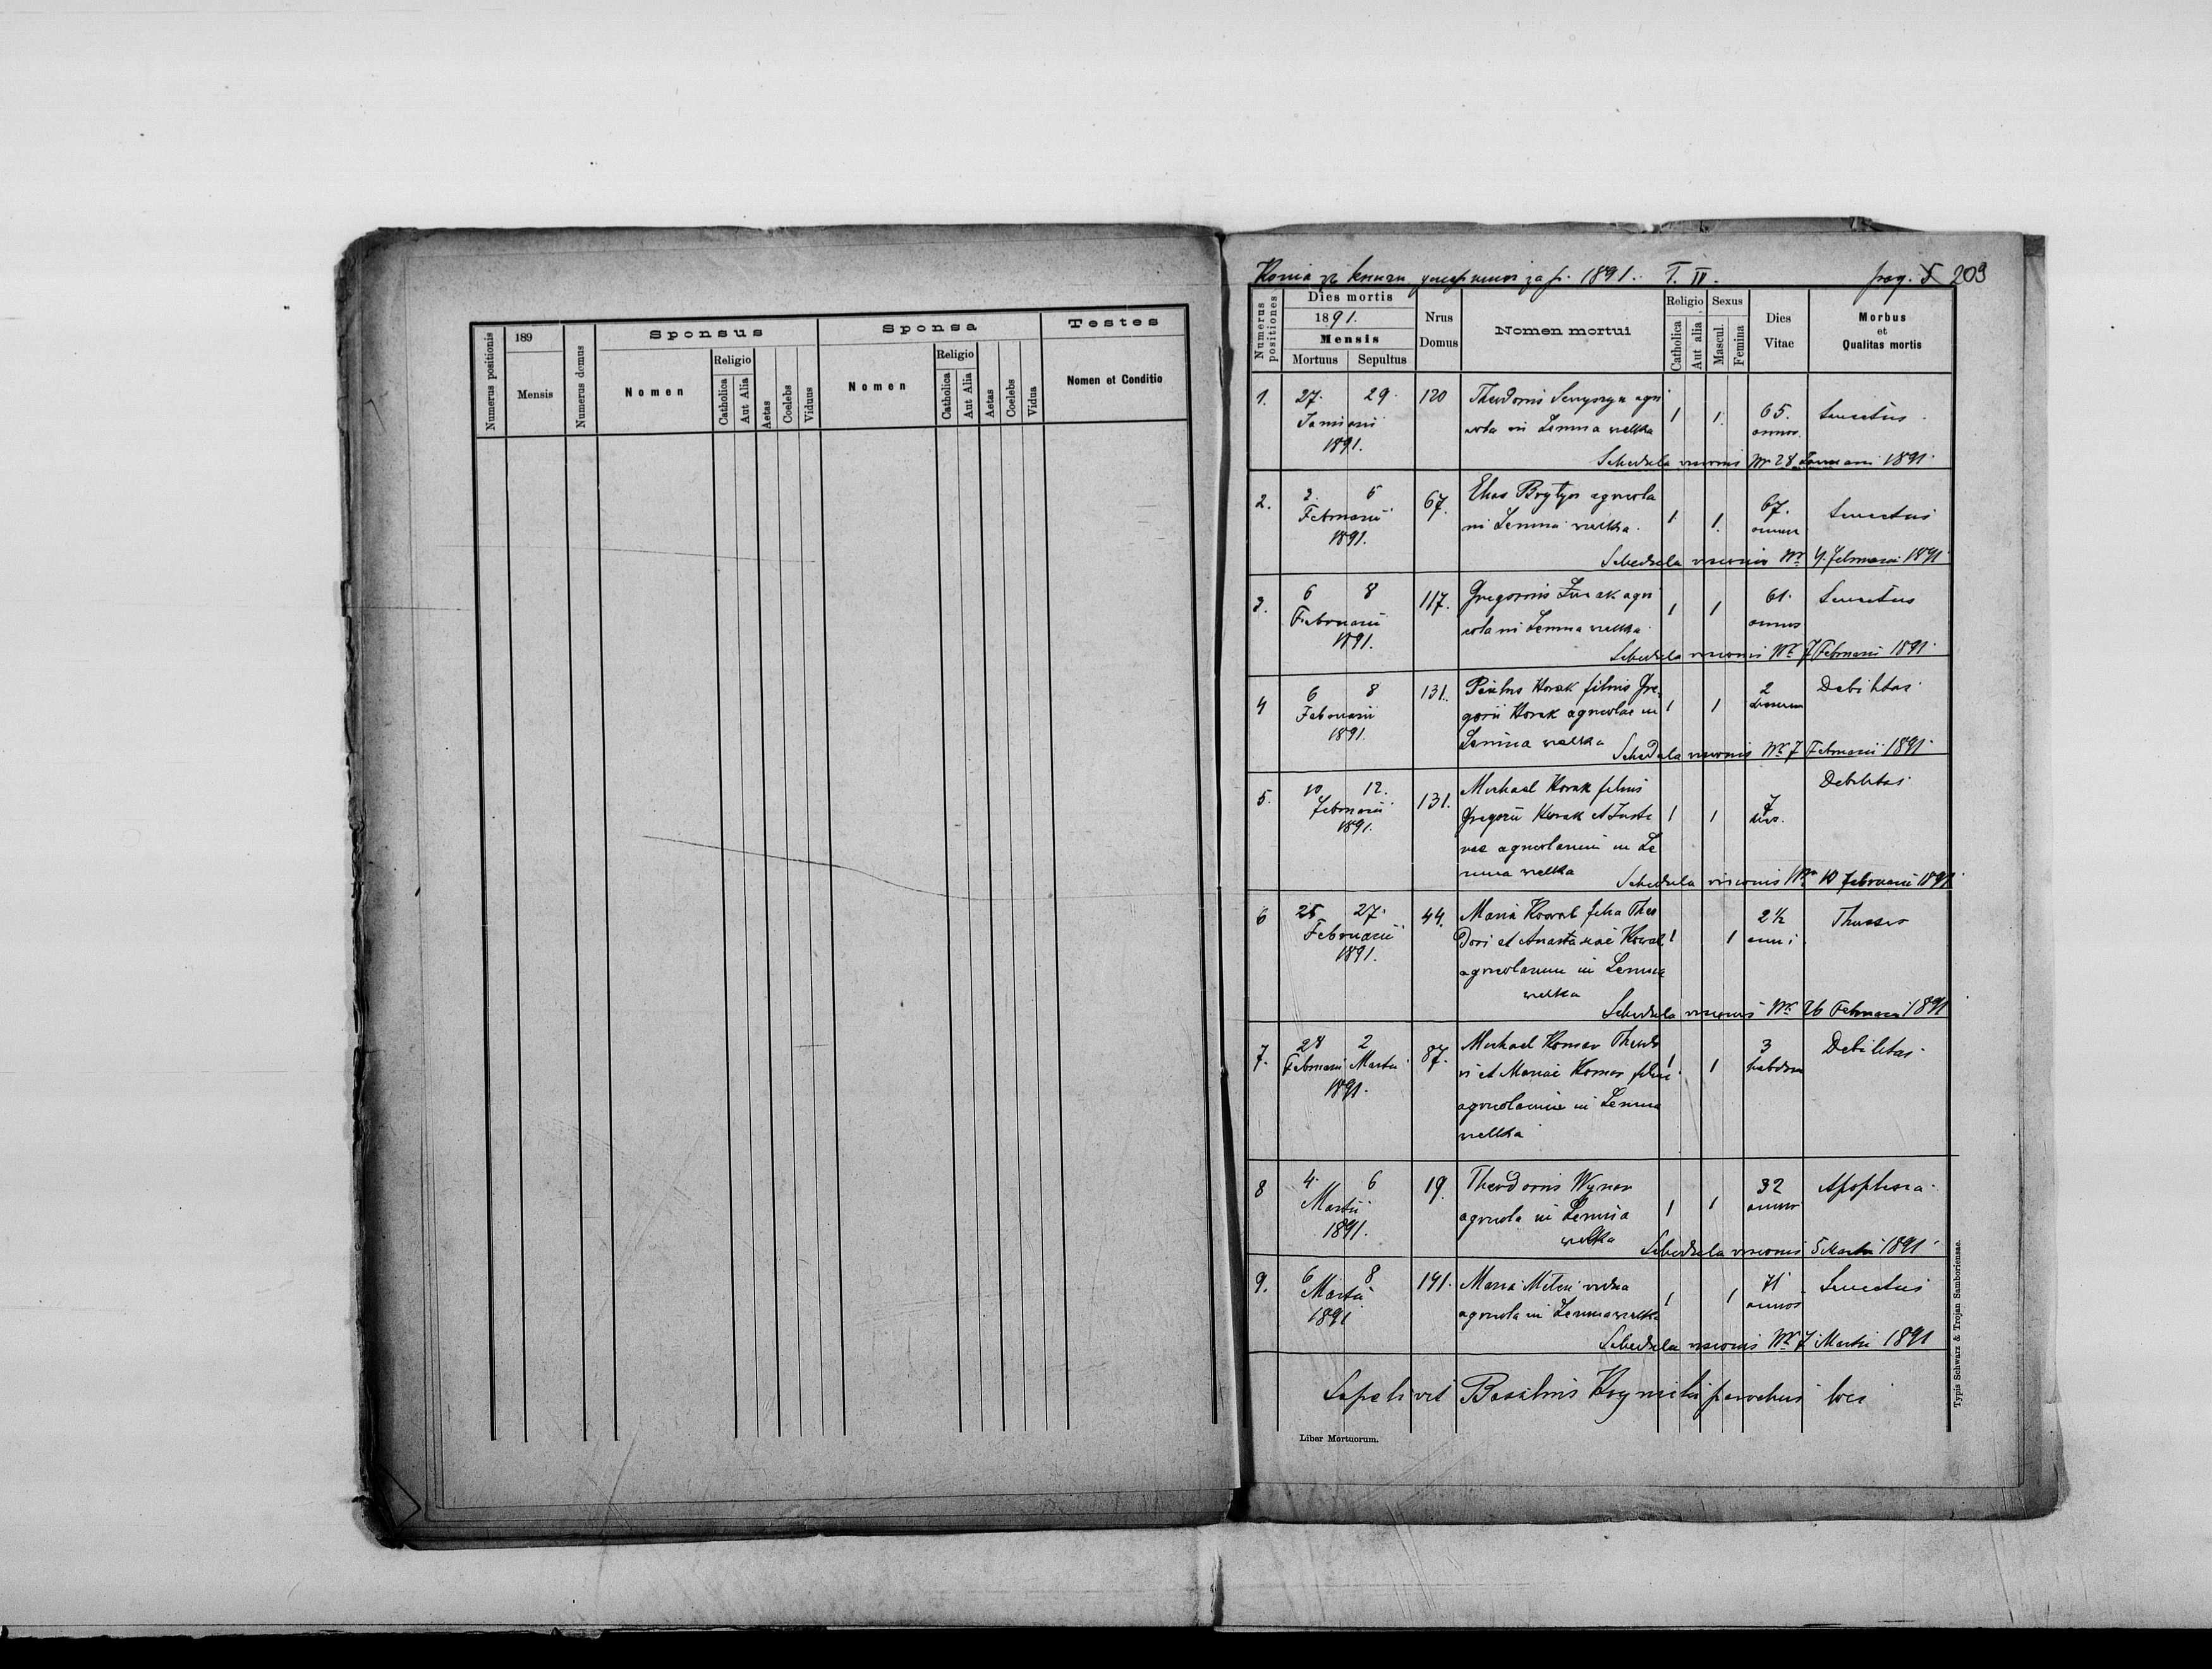 Numerus positionis
189
Mensis
Numerus domus
Sponsus
Nomen
Religio
Catholica
Aut Alia
Aetas
Coelebs
Viduus
Sponsa
Nomen
Religio
Catholica
Aut Alia
Aetas
Coelebs
Vidua
Testes
Nomen et Conditio
1891. T. II. pag. 203
Numerus positiones
Dies mortis
1891.
Mensis
Mortuus Sepultus
Nrus Domus
Nomen mortui
Religio
Catholica
Aut alia
Sexus
Mascul.
Femina
Dies Vitae
Morbus
et
Qualitas mortis
1. 27. 29. 120 agri 1 1. 65. Senectus
Januarii cola in Lenina welka annor.
1891.
Schedula visionis Nr 28 Januarii 1891.
2. 3. 5 67. Elias agricola 1. 1. 67. Senectus
Februarii in Lenina welka. annor
1891.
Schedula visionis Nr 4. Februarii 1891
3. 6 8 117. Gregorius Żurak agri 1 1 61. Senectus
Februarii cola in Lenina welka annos
1891.
Schedula visionis Nr 7 Februarii 1891.
4 6 8 131. Paulus Horak filius Gre- 1 1 2 Debilitas
Februarii gorii Horak agricolae in
1891. Lenina welka
Schedula visionis Nr 7 Februarii 1891.
5. 10 12. 131. Michael Horak filius 1 1 7 Debilitas
Februarii Gregorii Horak et Juste dies.
1891. nae agricolarum in Le
nina welka
Schedula visionis Nr 10 Februarii 1891
6 25 27. 44. Maria Kowal filia Theo 1 1 2½ Thussis
Februarii dori et Anastasiae Kowal anni
1891. agricolarum in Lenina
welka
Schedula visionis Nr 26 Februarii 1891
7. 28 2 87. Michael Komar Theodo 1 1 3 Debilitas.
Februarii Martii ri et Mariae Komar filius hebdom
1891. agricolarum in Lenina
welka
8 4. 6 19. Theodorus Wynar 1 1 32
Martii agricola in Lenina annor
1891. welka
Schedula visionis 5 Martii 1891
9. 6 8 141. Maria vidua 1 1 71 Senectus
Martii agricola in Lenina welka annos
1891
Schedula visionis Nr 7 Martii 1891
Sepelivit Basilius parochus loci
Liber Mortuorum.
Typis Schwarz & Trojan Samboriensae.